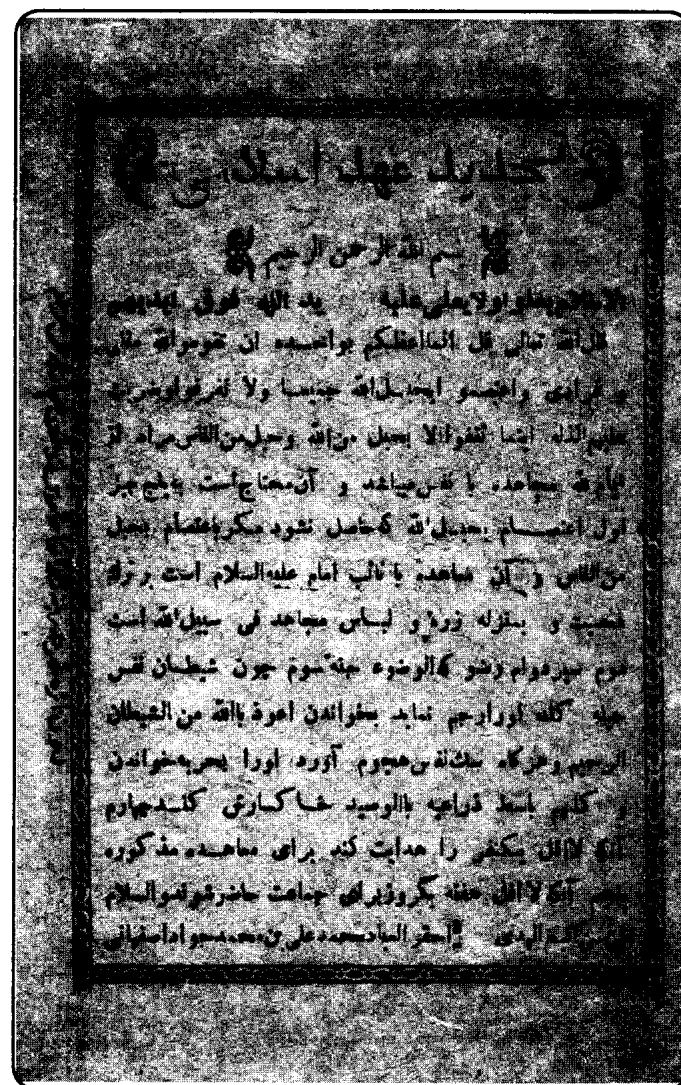 تجدید عهد اسلامی
بسم الله الرحمن الرحیم
الاسلام یعلو ولا یعلی علیه ید الله فوق ایدیهم
قال الله تعالی قل انما اعظکم بواحده ان تقوموا لله مثنی
و فرادی واعتصمو ابحبل الله جمیعا ولا تفرقوا وضربت
علیهم الذله اینما ثقفوا الا بحبل من الله وحبل من الناس مراد از
قیام لله مجاهده با نفس میباشد و آن محتاج است به پنج چیز
اول اعتصام بحبل الله که حاصل نشود مگر باعتصام بحبل
من الناس و آن معاهده با نائب امام علیه السلام است و ترك
و بمنزله زره و لباس مجاهد فی سبیل الله است
دوم سپر دوام وضو که الوضوء جنة سوم چون شیطان نفس
حمله کند اورا رجم نماید بخواندن اعوذ بالله من الشیطان
الرجیم و هرگاه سك نفس هجوم آورد اورا بحربه خواندن
و کلبهم باسط ذراعیه بالوصید خاکساری کند چهارم
آنکه لا اقل یکنفر را هدایت کند برای معاهده مذکوره
پنجم آنکه لا اقل هفته یکروز برای جماعت حاضر شوند والسلام
علی من اتبع الهدی احقر العباد محمد علی بن محمد جواد اصفهانی